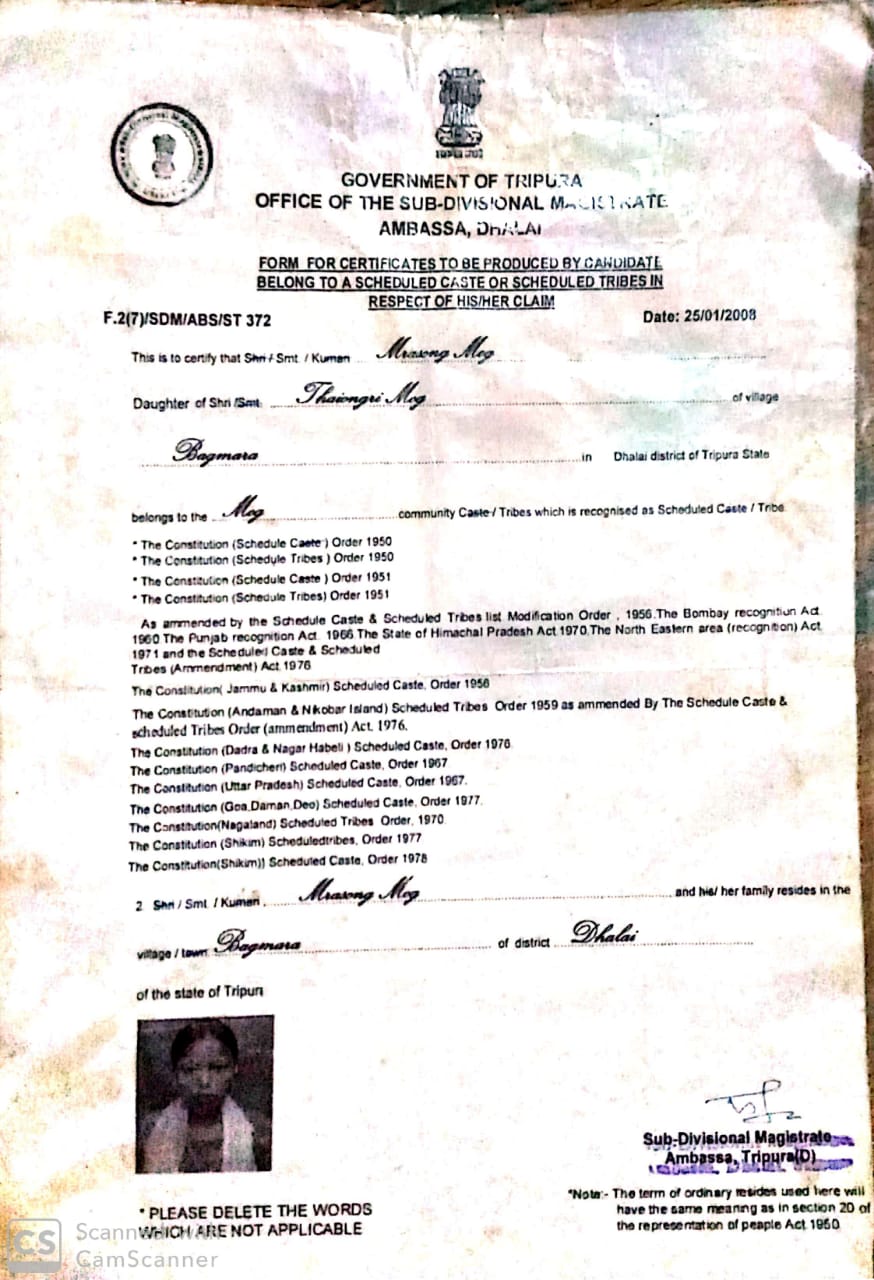 GOVERNMENT OF TRIPURA
OFFICE OF THE SUB-DIVISIONAL MAGISTRATE
AMBASSA, DHALAI
FORM FOR CERTIFICATES TO BE PRODUCED BY CANDIDATE
BELONG TO A SCHEDULED CASTE OR SCHEDULED TRIBES IN
RESPECT OF HIS/HER CLAIM
F.2(7)/SDM/ABS/ST 372 Date: 25/01/2008
This is to certify that Shri / Smt. / Kumari Mrasong Mog
Daughter of Shri /Smt. Thaiongri Mog of village
Bagmara in Dhalai district of Tripura State
belongs to the Mog community Caste / Tribes which is recognised as Scheduled Caste / Tribe
* The Constitution (Schedule Caste ) Order 1950
* The Constitution (Schedule Tribes ) Order 1950
* The Constitution (Schedule Caste ) Order 1951
* The Constitution (Schedule Tribes) Order 1951
As ammended by the Schedule Caste & Scheduled Tribes list Modification Order , 1956.The Bombay recognition Act.
1960 The Punjab recognition Act. 1966 The State of Himachal Pradesh Act 1970,The North Eastern area (recognition) Act,
1971 and the Scheduled Caste & Scheduled
Tribes (Ammendment) Act 1976
The Constitution( Jammu & Kashmir) Scheduled Caste, Order 1956
The Constitution (Andaman & Nikobar Island) Scheduled Tribes Order 1959 as ammended By The Schedule Caste &
scheduled Tribes Order (ammendment) Act. 1976.
The Constitution (Dadra & Nagar Habeli ) Scheduled Caste, Order 1976
The Constitution (Pandicheri) Scheduled Caste, Order 1967
The Constitution (Uttar Pradesh) Scheduled Caste, Order 1967.
The Constitution (Goa,Daman,Deo) Scheduled Caste, Order 1977.
The Constitution(Nagaland) Scheduled Tribes Order, 1970
The Constitution (Shikim) Scheduledtribes, Order 1977
The Constitution(Shikim)) Scheduled Caste, Order 1978
2 Shri / Smt. / Kumari. Mrasong Mog and his/ her family resides in the
village / town Bagmara of district Dhalai
of the state of Tripuri
Sub-Divisional Magistrate
Ambassa, Tripura(D)
* PLEASE DELETE THE WORDS
WHICH ARE NOT APPLICABLE
*Note:- The term of ordinary resides used here will
have the same meaning as in section 20 of
the representation of peaple Act 1950
CS Scanned with
CamScanner